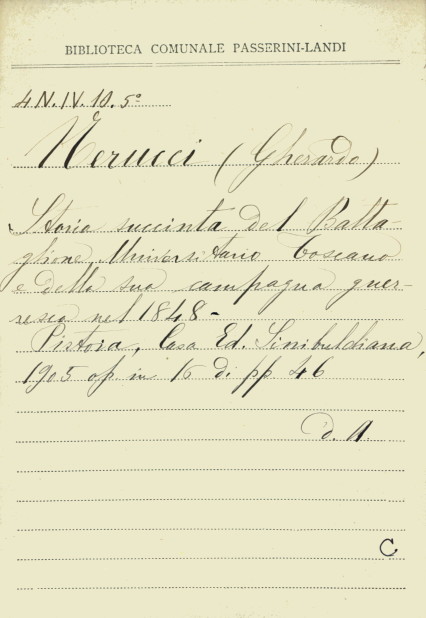 BIBLIOTECA COMUNALE PASSERINI-LANDI
4 N. IV. 10. 5º
Nerucci (Gherardo)
Storia succinta del Batta-
glione Universitario Toscano
e della sua campagna guer-
resca nel 1848-
Pistoia, Casa Ed. Sinibuldiana,
1905 op. in 16 di pp 46
D. A.
C